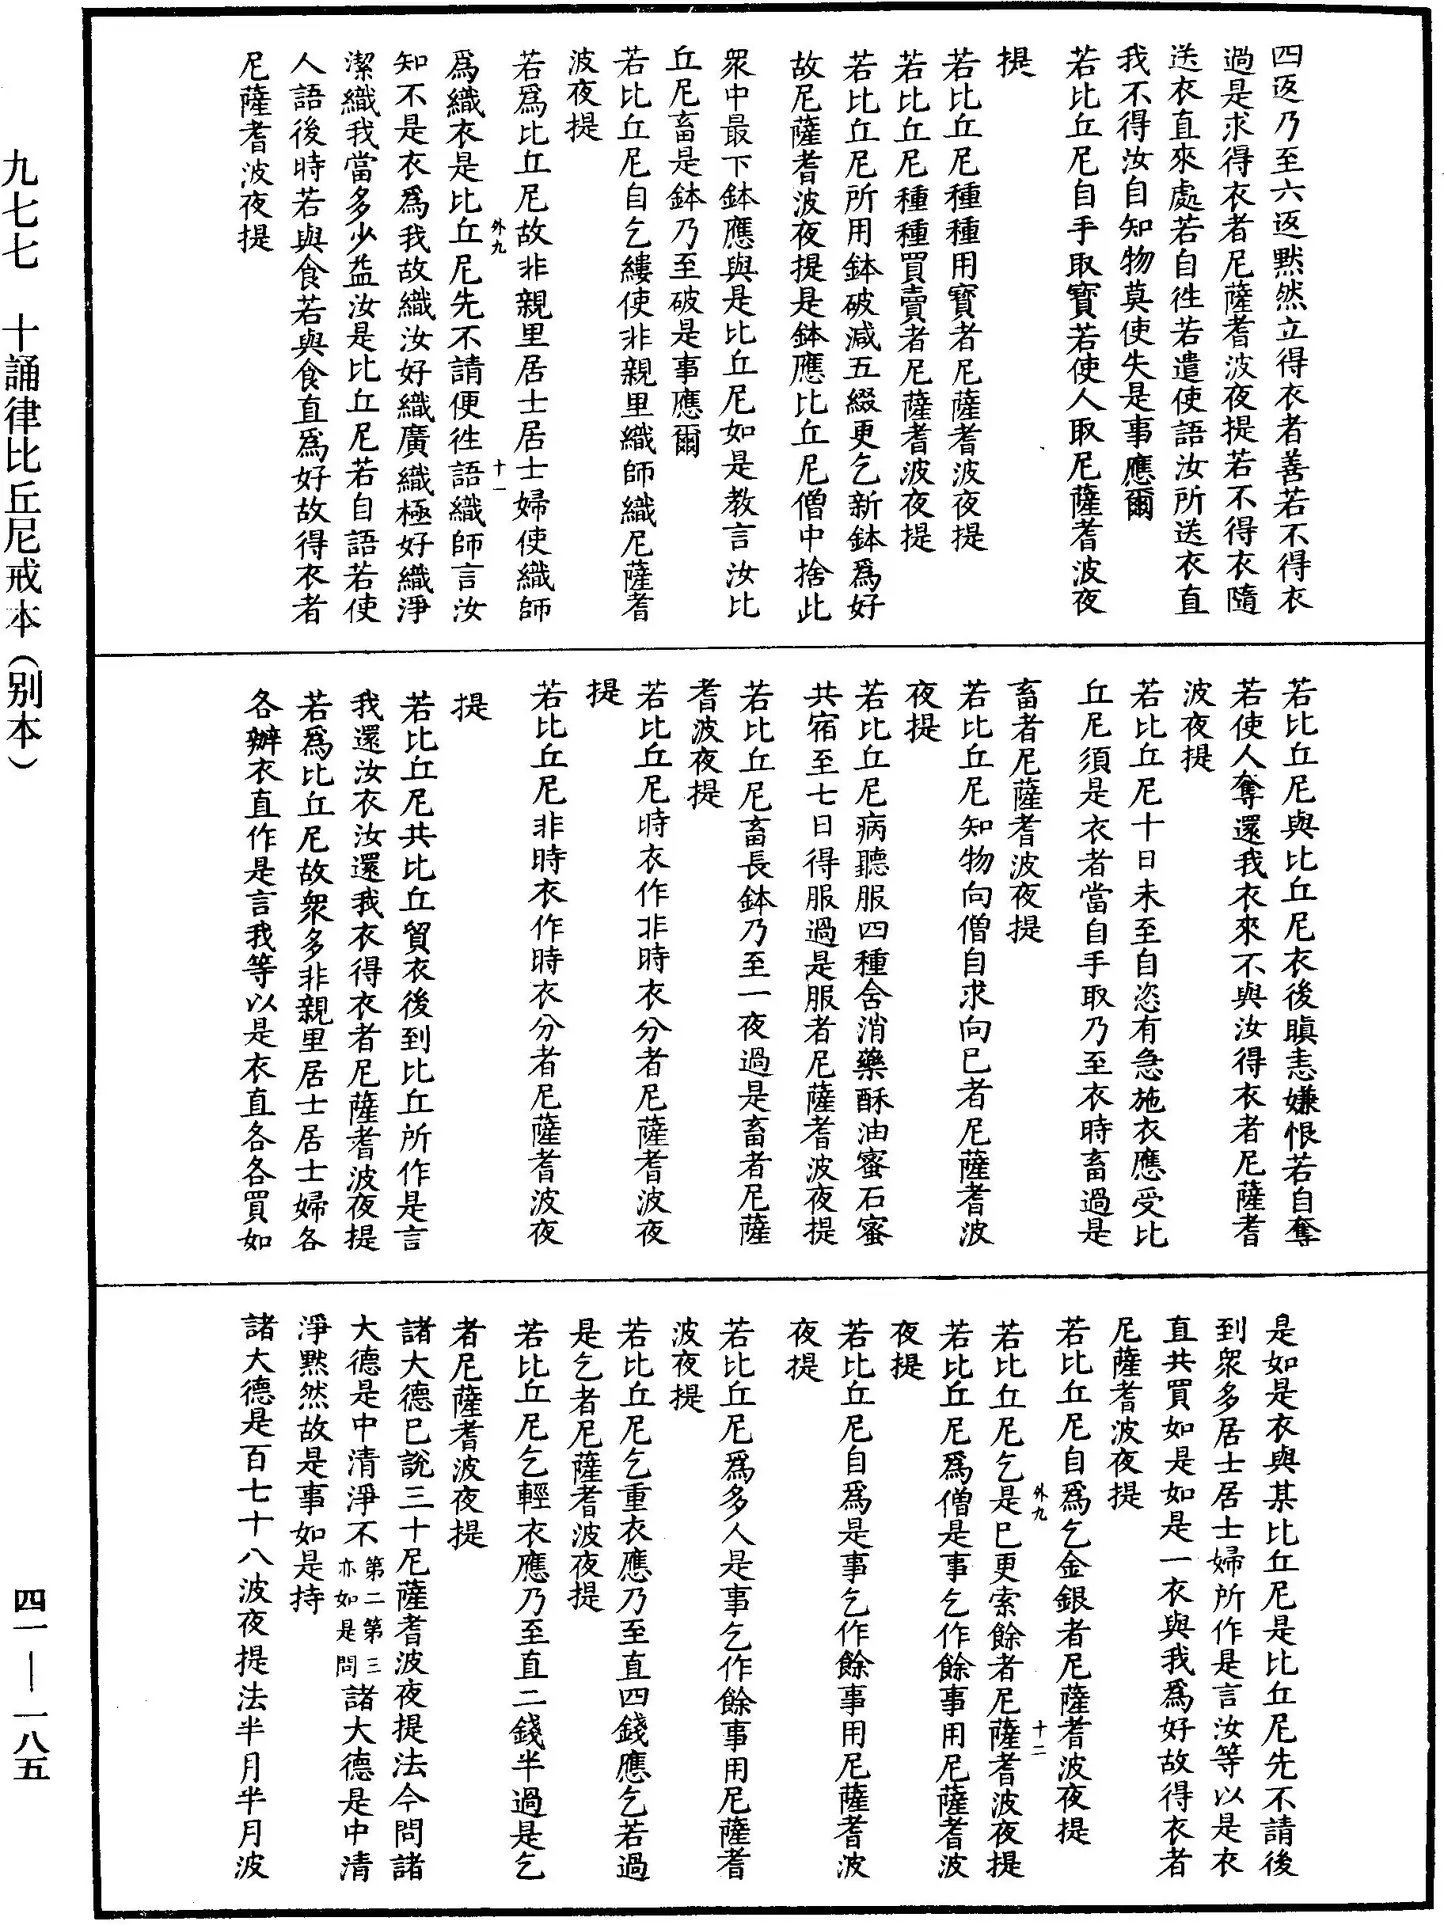 四返乃至六返默然立得衣者善若不得衣
過是求得衣者尼薩耆波夜提若不得衣隨
送衣直來處若自徃若遣使語汝所送衣直
我不得汝自知物莫使失是事應爾
若比丘尼自手取寳若使人取尼薩耆波夜
提
若比丘尼種種用寳者尼薩耆波夜提
若比丘尼種種買賣者尼薩耆波夜提
若比丘尼所用鉢破減五綴更乞新鉢爲好
故尼薩耆波夜提是鉢應比丘尼僧中捨此
衆中最下鉢應與是比丘尼如是教言汝比
丘尼畜是鉢乃至破是事應爾
若比丘尼自乞縷使非親里織師織尼薩耆
波夜提
若爲比丘尼故非親里居士居士婦使織師
外九
十一
爲織衣是比丘尼先不請便徃語織師言汝
知不是衣爲我故織汝好織廣織極好織淨
潔織我當多少益汝是比丘尼若自語若使
人語後時若與食若與食直爲好故得衣者
尼薩耆波夜提
若比丘尼與比丘尼衣後瞋恚嫌恨若自奪
若使人奪還我衣來不與汝得衣者尼薩耆
波夜提
若比丘尼十日未至自恣有急施衣應受比
丘尼須是衣者當自手取乃至衣時畜過是
畜者尼薩耆波夜提
若比丘尼知物向僧自求向已者尼薩耆波
夜提
若比丘尼病聽服四種含消藥酥油蜜石蜜
共宿至七日得服過是服者尼薩耆波夜提
若比丘尼畜長鉢乃至一夜過是畜者尼薩
耆波夜提
若比丘尼時衣作非時衣分者尼薩耆波夜
提
若比丘尼非時衣作時衣分者尼薩耆波夜
提
若比丘尼共比丘貿衣後到比丘所作是言
我還汝衣汝還我衣得衣者尼薩耆波夜提
若爲比丘尼故衆多非親里居士居士婦各
各辦衣直作是言我等以是衣直各各買如
是如是衣與某比丘尼是比丘尼先不請後
到衆多居士居士婦所作是言汝等以是衣
直共買如是如是一衣與我爲好故得衣者
尼薩耆波夜提
若比丘尼自爲乞金銀者尼薩耆波夜提
外九
十二
若比丘尼乞是已更索餘者尼薩耆波夜提
若比丘尼爲僧是事乞作餘事用尼薩耆波
夜提
若比丘尼自爲是事乞作餘事用尼薩耆波
夜提
若比丘尼爲多人是事乞作餘事用尼薩耆
波夜提
若比丘尼乞重衣應乃至直四錢應乞若過
是乞者尼薩耆波夜提
若比丘尼乞輕衣應乃至直二錢半過是乞
者尼薩耆波夜提
諸大德已說三十尼薩耆波夜提法今問諸
大德是中清淨不第二第三亦如是問諸大德是中清
淨默然故是事如是持
諸大德是百七十八波夜提法半月半月波
九七七 十誦律比丘尼戒本(别本)
四一—一八五